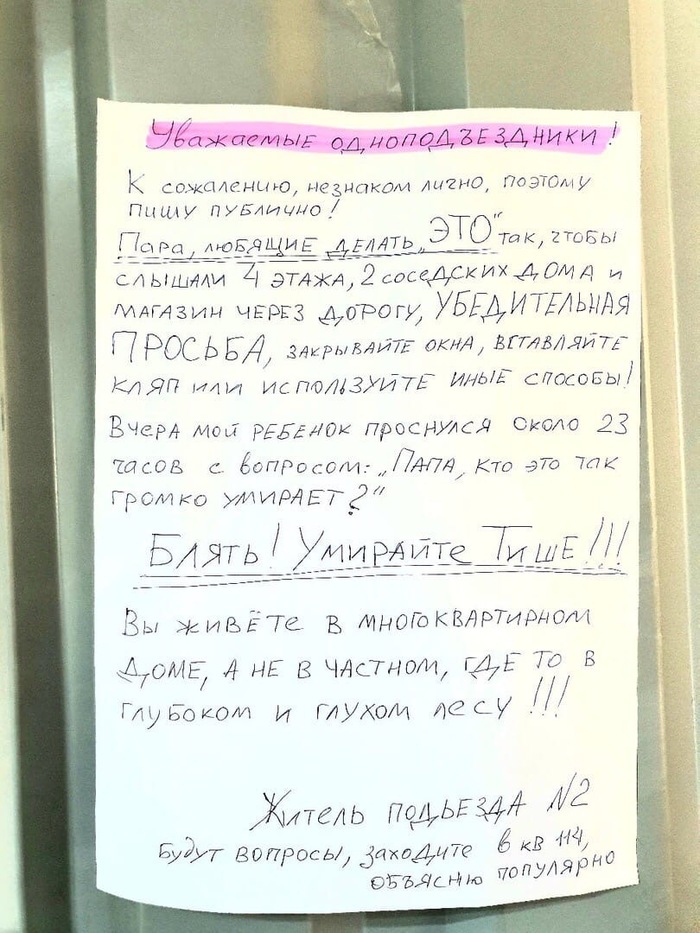 Уважаемые одноподъездники!
К сожалению, незнаком лично, поэтому
пишу публично!
Пара, любящие делать „ЭТО" так, чтобы
слышали 4 этажа, 2 соседских дома и
магазин через дорогу, УБЕДИТЕЛЬНАЯ
ПРОСЬБА, закрывайте окна, вставляйте
кляп или используйте иные способы!
Вчера мой ребенок проснулся около 23
часов с вопросом: „Папа, кто это так
громко умирает?"
Блять! Умирайте Тише!!!
Вы живёте в многоквартирном
доме, а не в частном, где то в
глубоком и глухом лесу!!!
Житель подьезда №2
Будут вопросы, заходите в кв 114,
объясню популярно